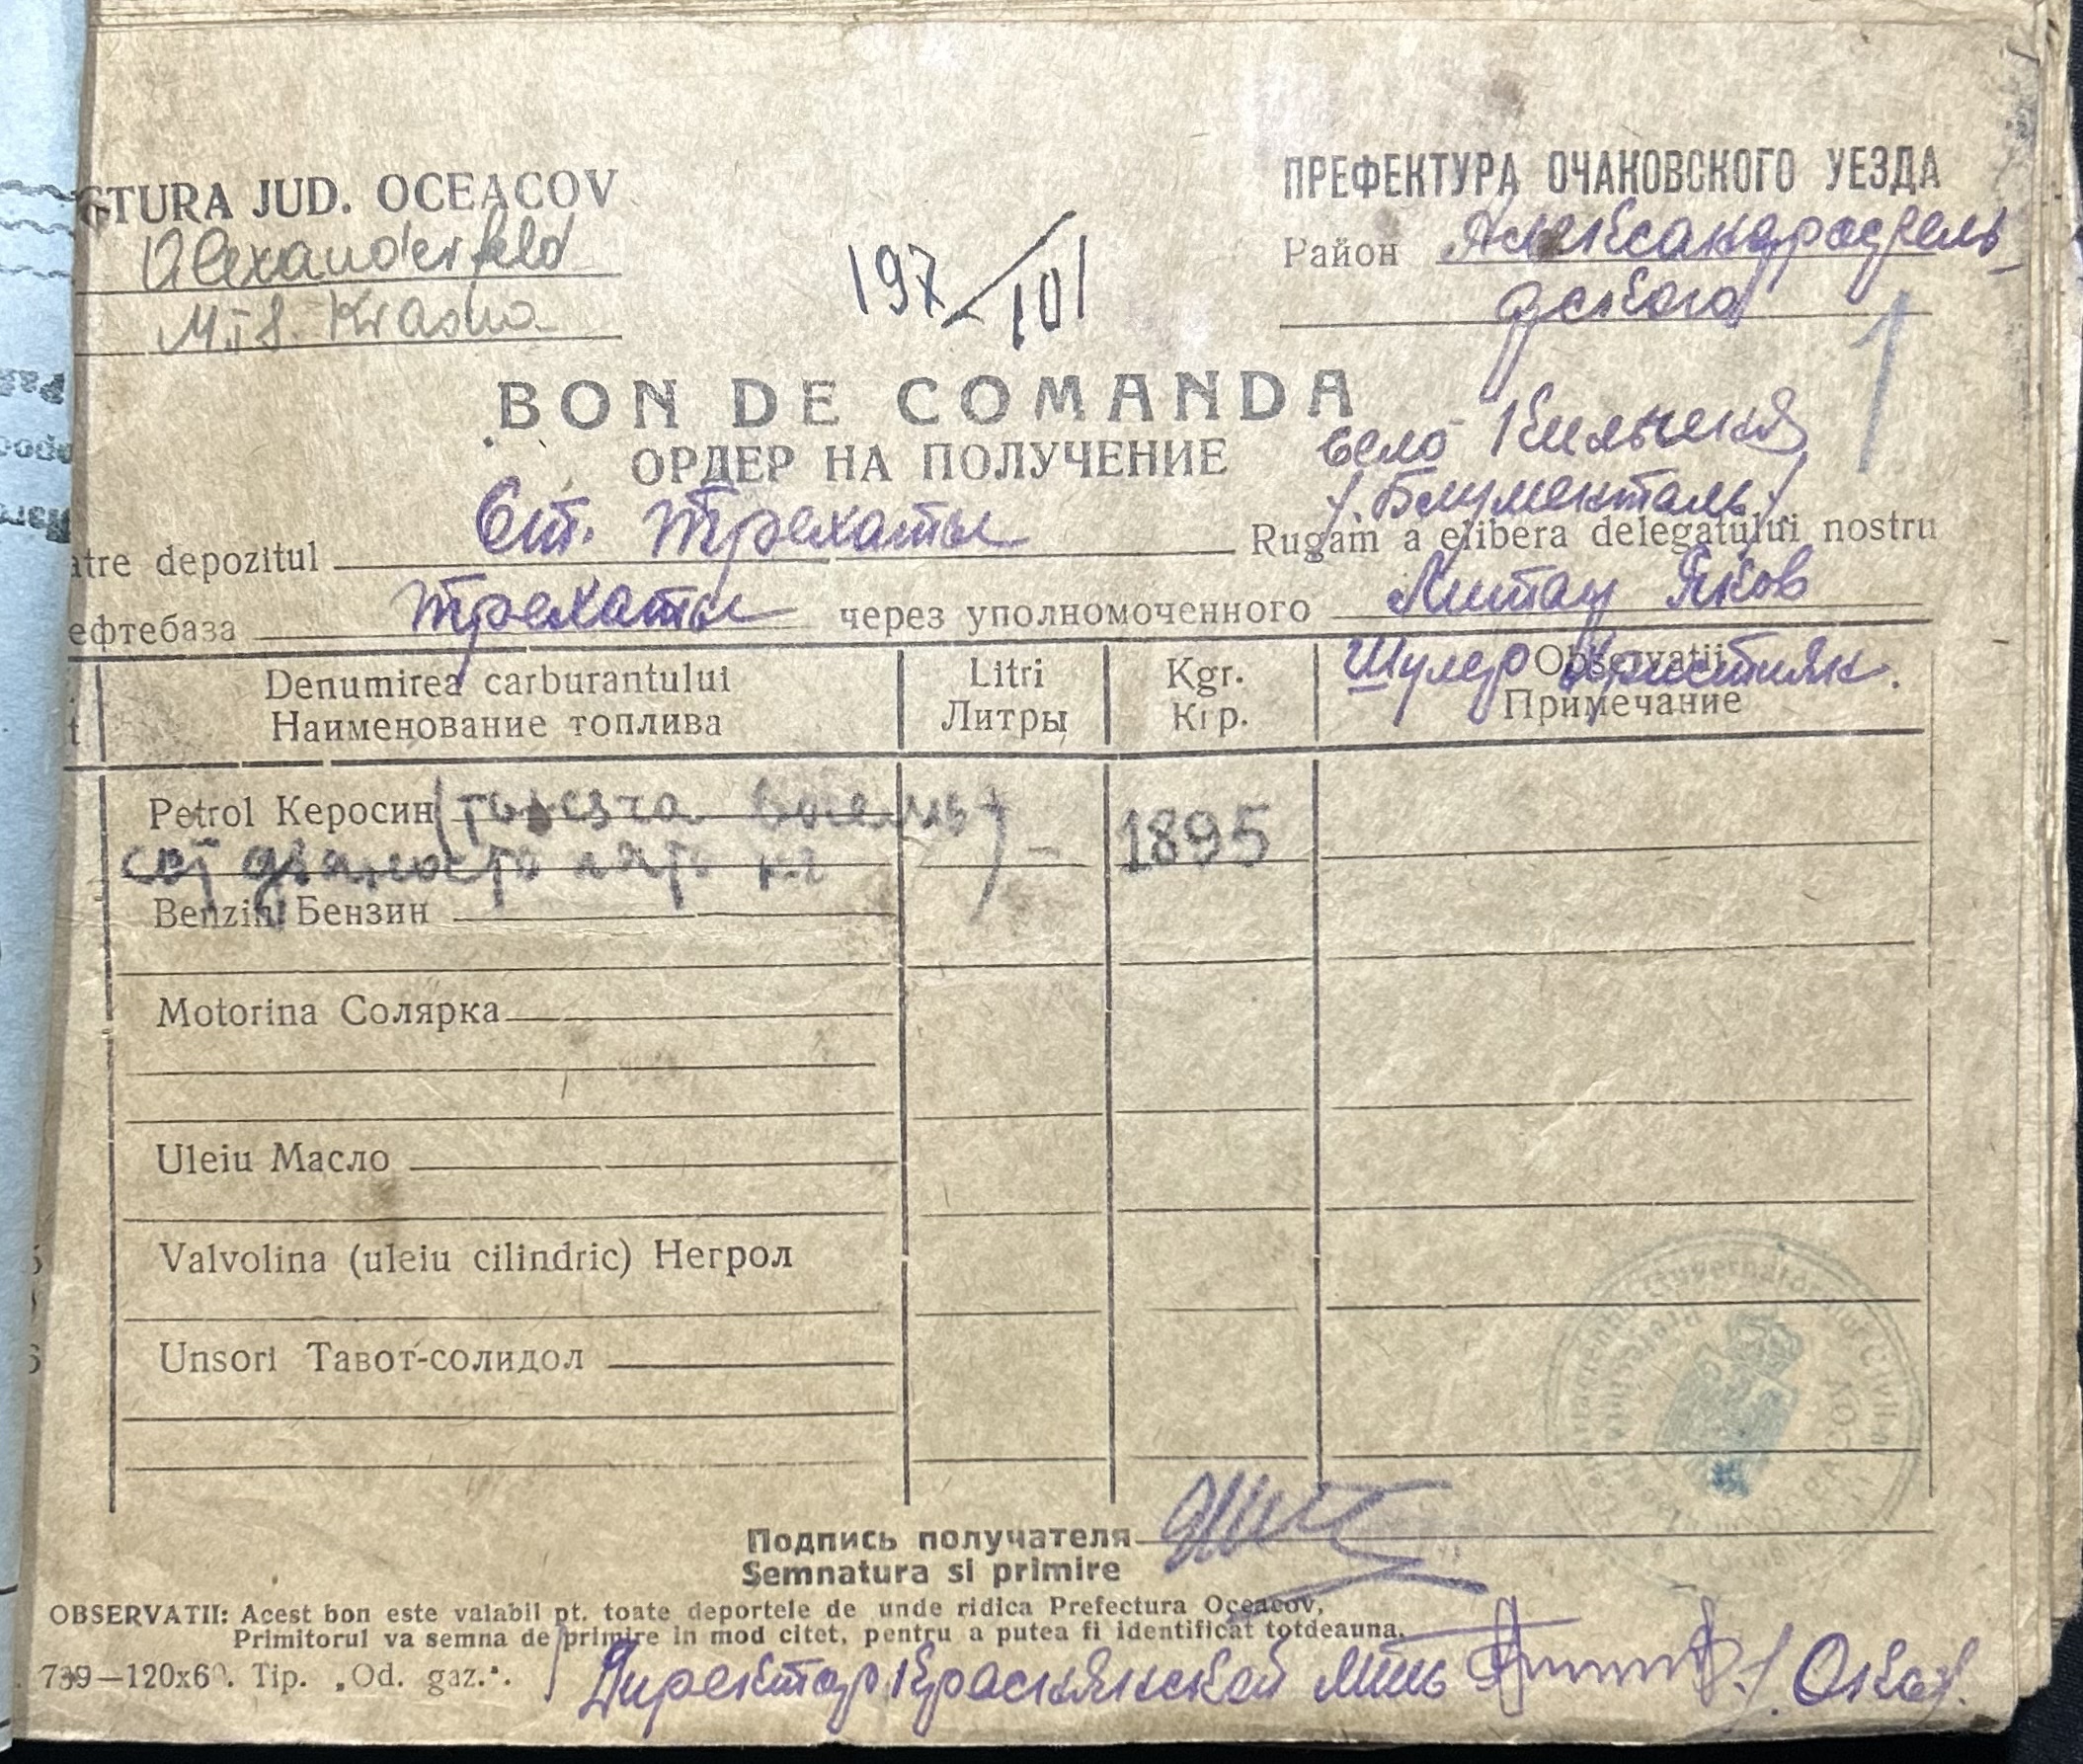 CTURA JUD. OCEACOV
ПРЕФЕКТУРА ОЧАКОВСКОГО УЕЗДА
Alexanderfeld
Район Александрофель-
дского
MTS. Krasna
197/101
1
BON DE COMANDA
ОРДЕР НА ПОЛУЧЕНИЕ
село
/Блументаль/
atre depozitul Ст. Трехаты Rugam a elibera delegatului nostru
ефтебаза Трехаты через уполномоченного Митау Яков
Шулер Християн.
Denumirea carburantului Litri Kgr. Observatii
Наименование топлива Литры Кгр. Примечание
Petrol Керосин (тысяча восемь
сот девяносто пять кг) – 1895
Benzin Бензин
Motorina Солярка
Uleiu Масло
Valvolina (uleiu cilindric) Негрол
Unsori Тавот-солидол
Подпись получателя
Semnatura si primire
OBSERVATII: Acest bon este valabil pt. toate deportele de unde ridica Prefectura Oceacov,
Primitorul va semna de primire in mod citet, pentru a putea fi identificat totdeauna.
739—120x60. Tip. „Od. gaz.".
Директор Краснянской мтс